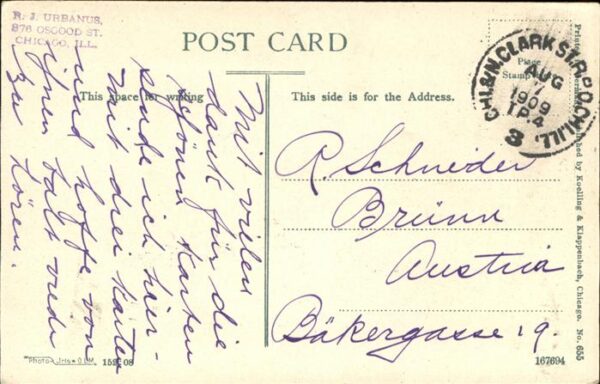 R. J. URBANUS,
876 OSGOOD ST.
CHICAGO, ILL.
POST CARD
Place
Stamp
CHI. & N. CLARK ST. R.P.O. CHI. ILL.
AUG
7
1909
TR4
3
This space for writing
This side is for the Address.
Mit vielen
dank für die
schönen karten
sende ich hier-
mit drei karten
und hoffe von
ihnen balt wieder
zu hören.
R. Schneider
Brünn
Austria
Bäkergasse 19.
by Koelling & Klappenbach, Chicago. No. 655
159-08
167694